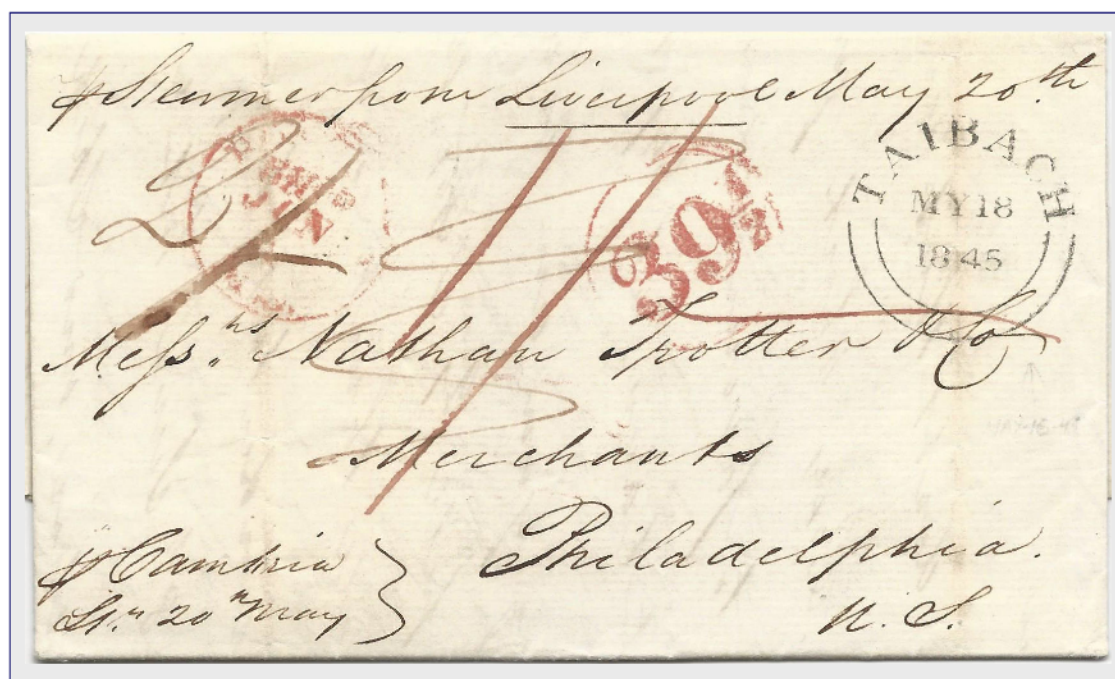 p Steamer from Liverpool May 20th
TAIBACH
MY 18
1845
SHIP
JUN
39 1/2
Messrs Nathan Trotter & Co
Merchants
Philadelphia.
U. S.
p Cambria
Str 20th May